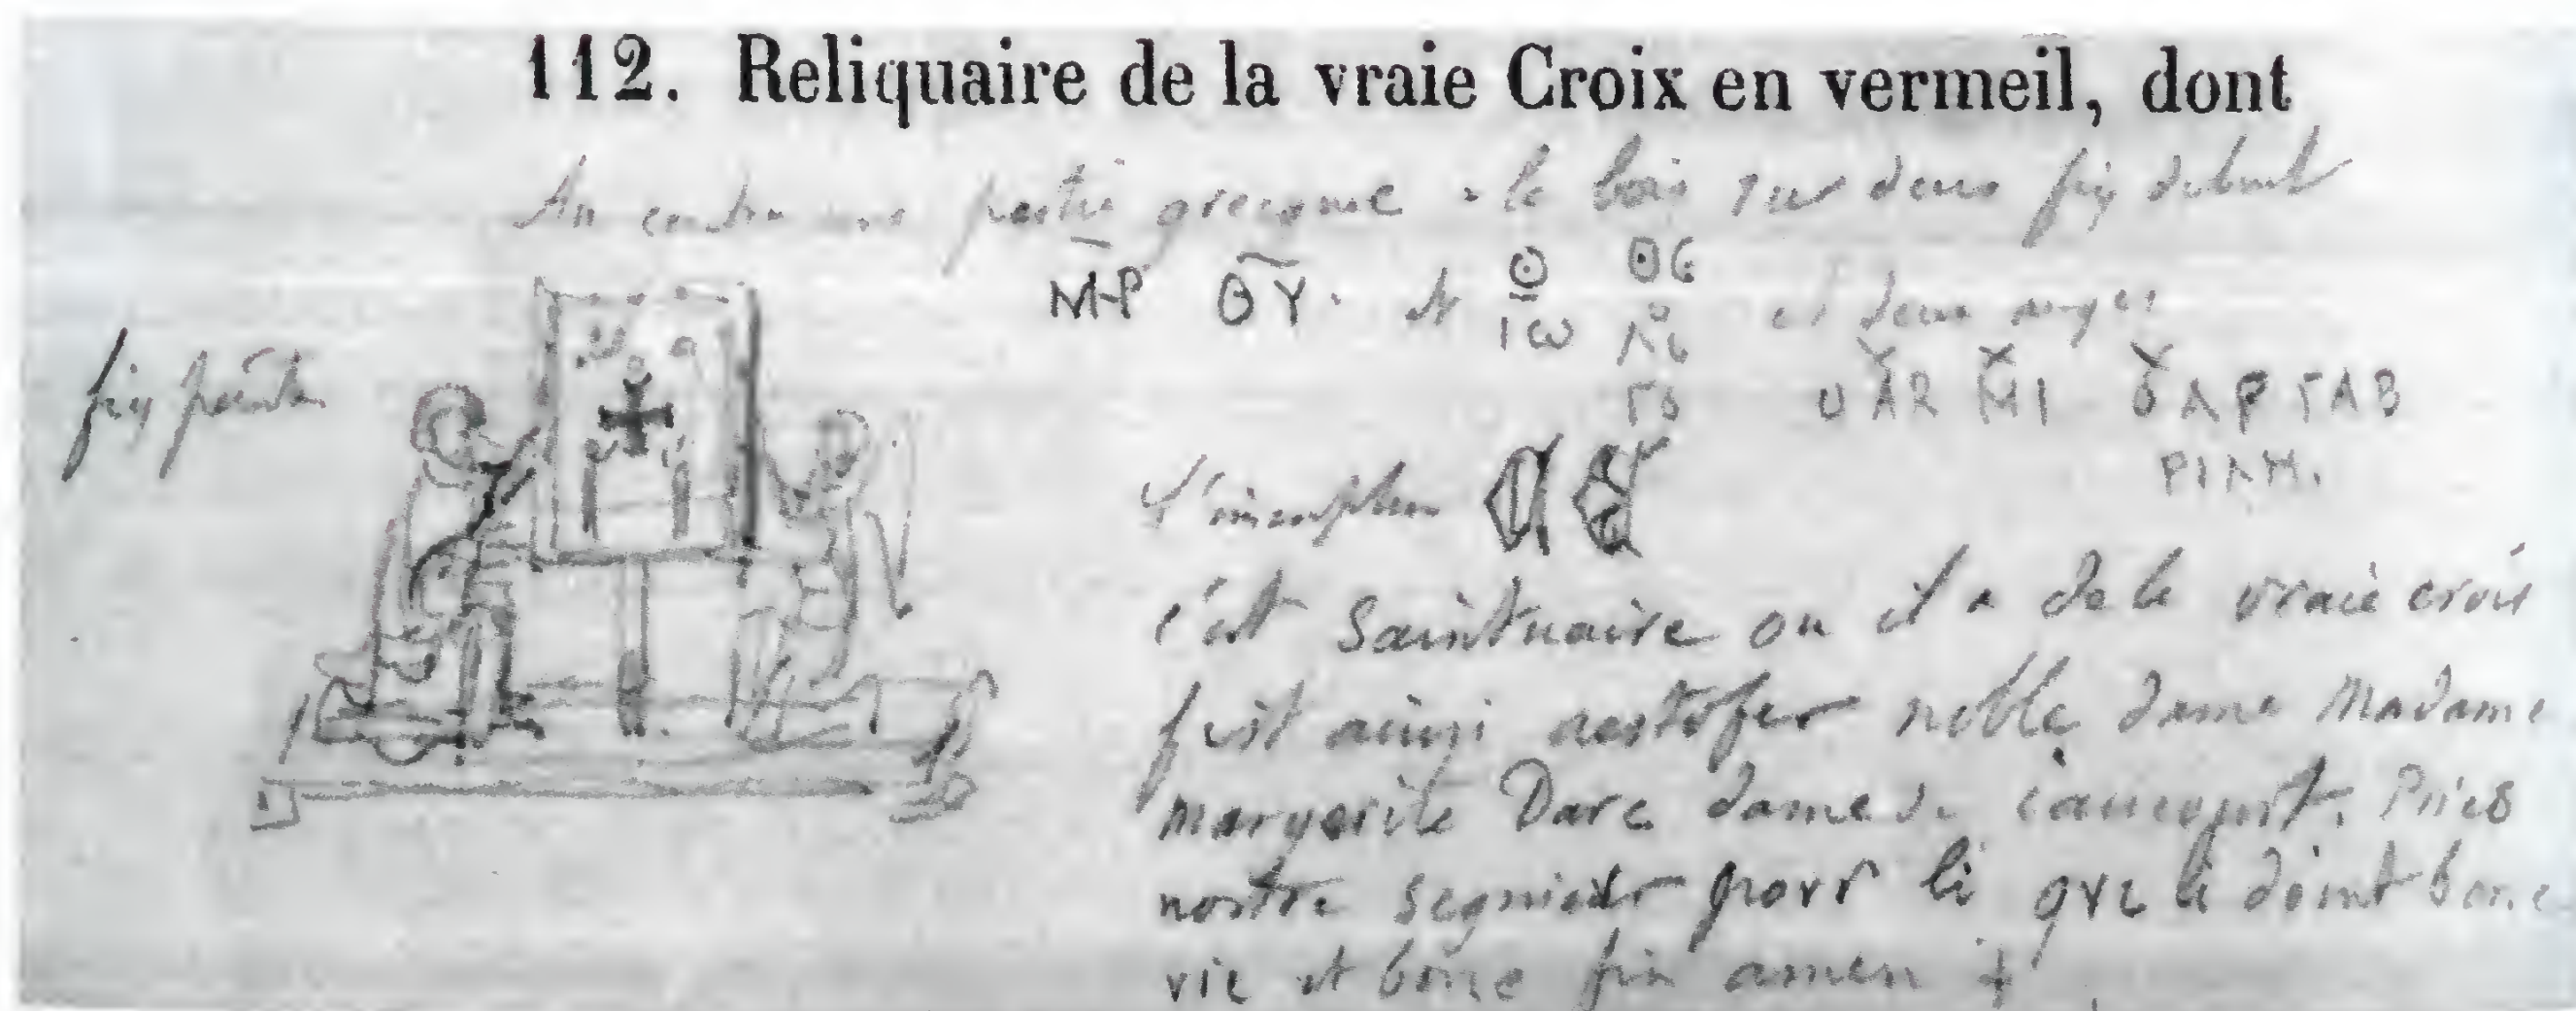 112. Reliquaire de la vraie Croix en vermeil, dont
Au centre une partie grecque . le bois sur deux fig debout
M-P ΘY. et Θ ΘΕ et deux anges
ΙΩ
ΓΟ
ΓΑΒ
ΡΙΛΗ.
fig
L'inscription
c'est Saintuaire ou il a de la vraie crois
fist ainsi noble dame Madame
margerite Darc dame de Pries
nostre segnieur povr li qve li doint bone
vie et bone fin amen +